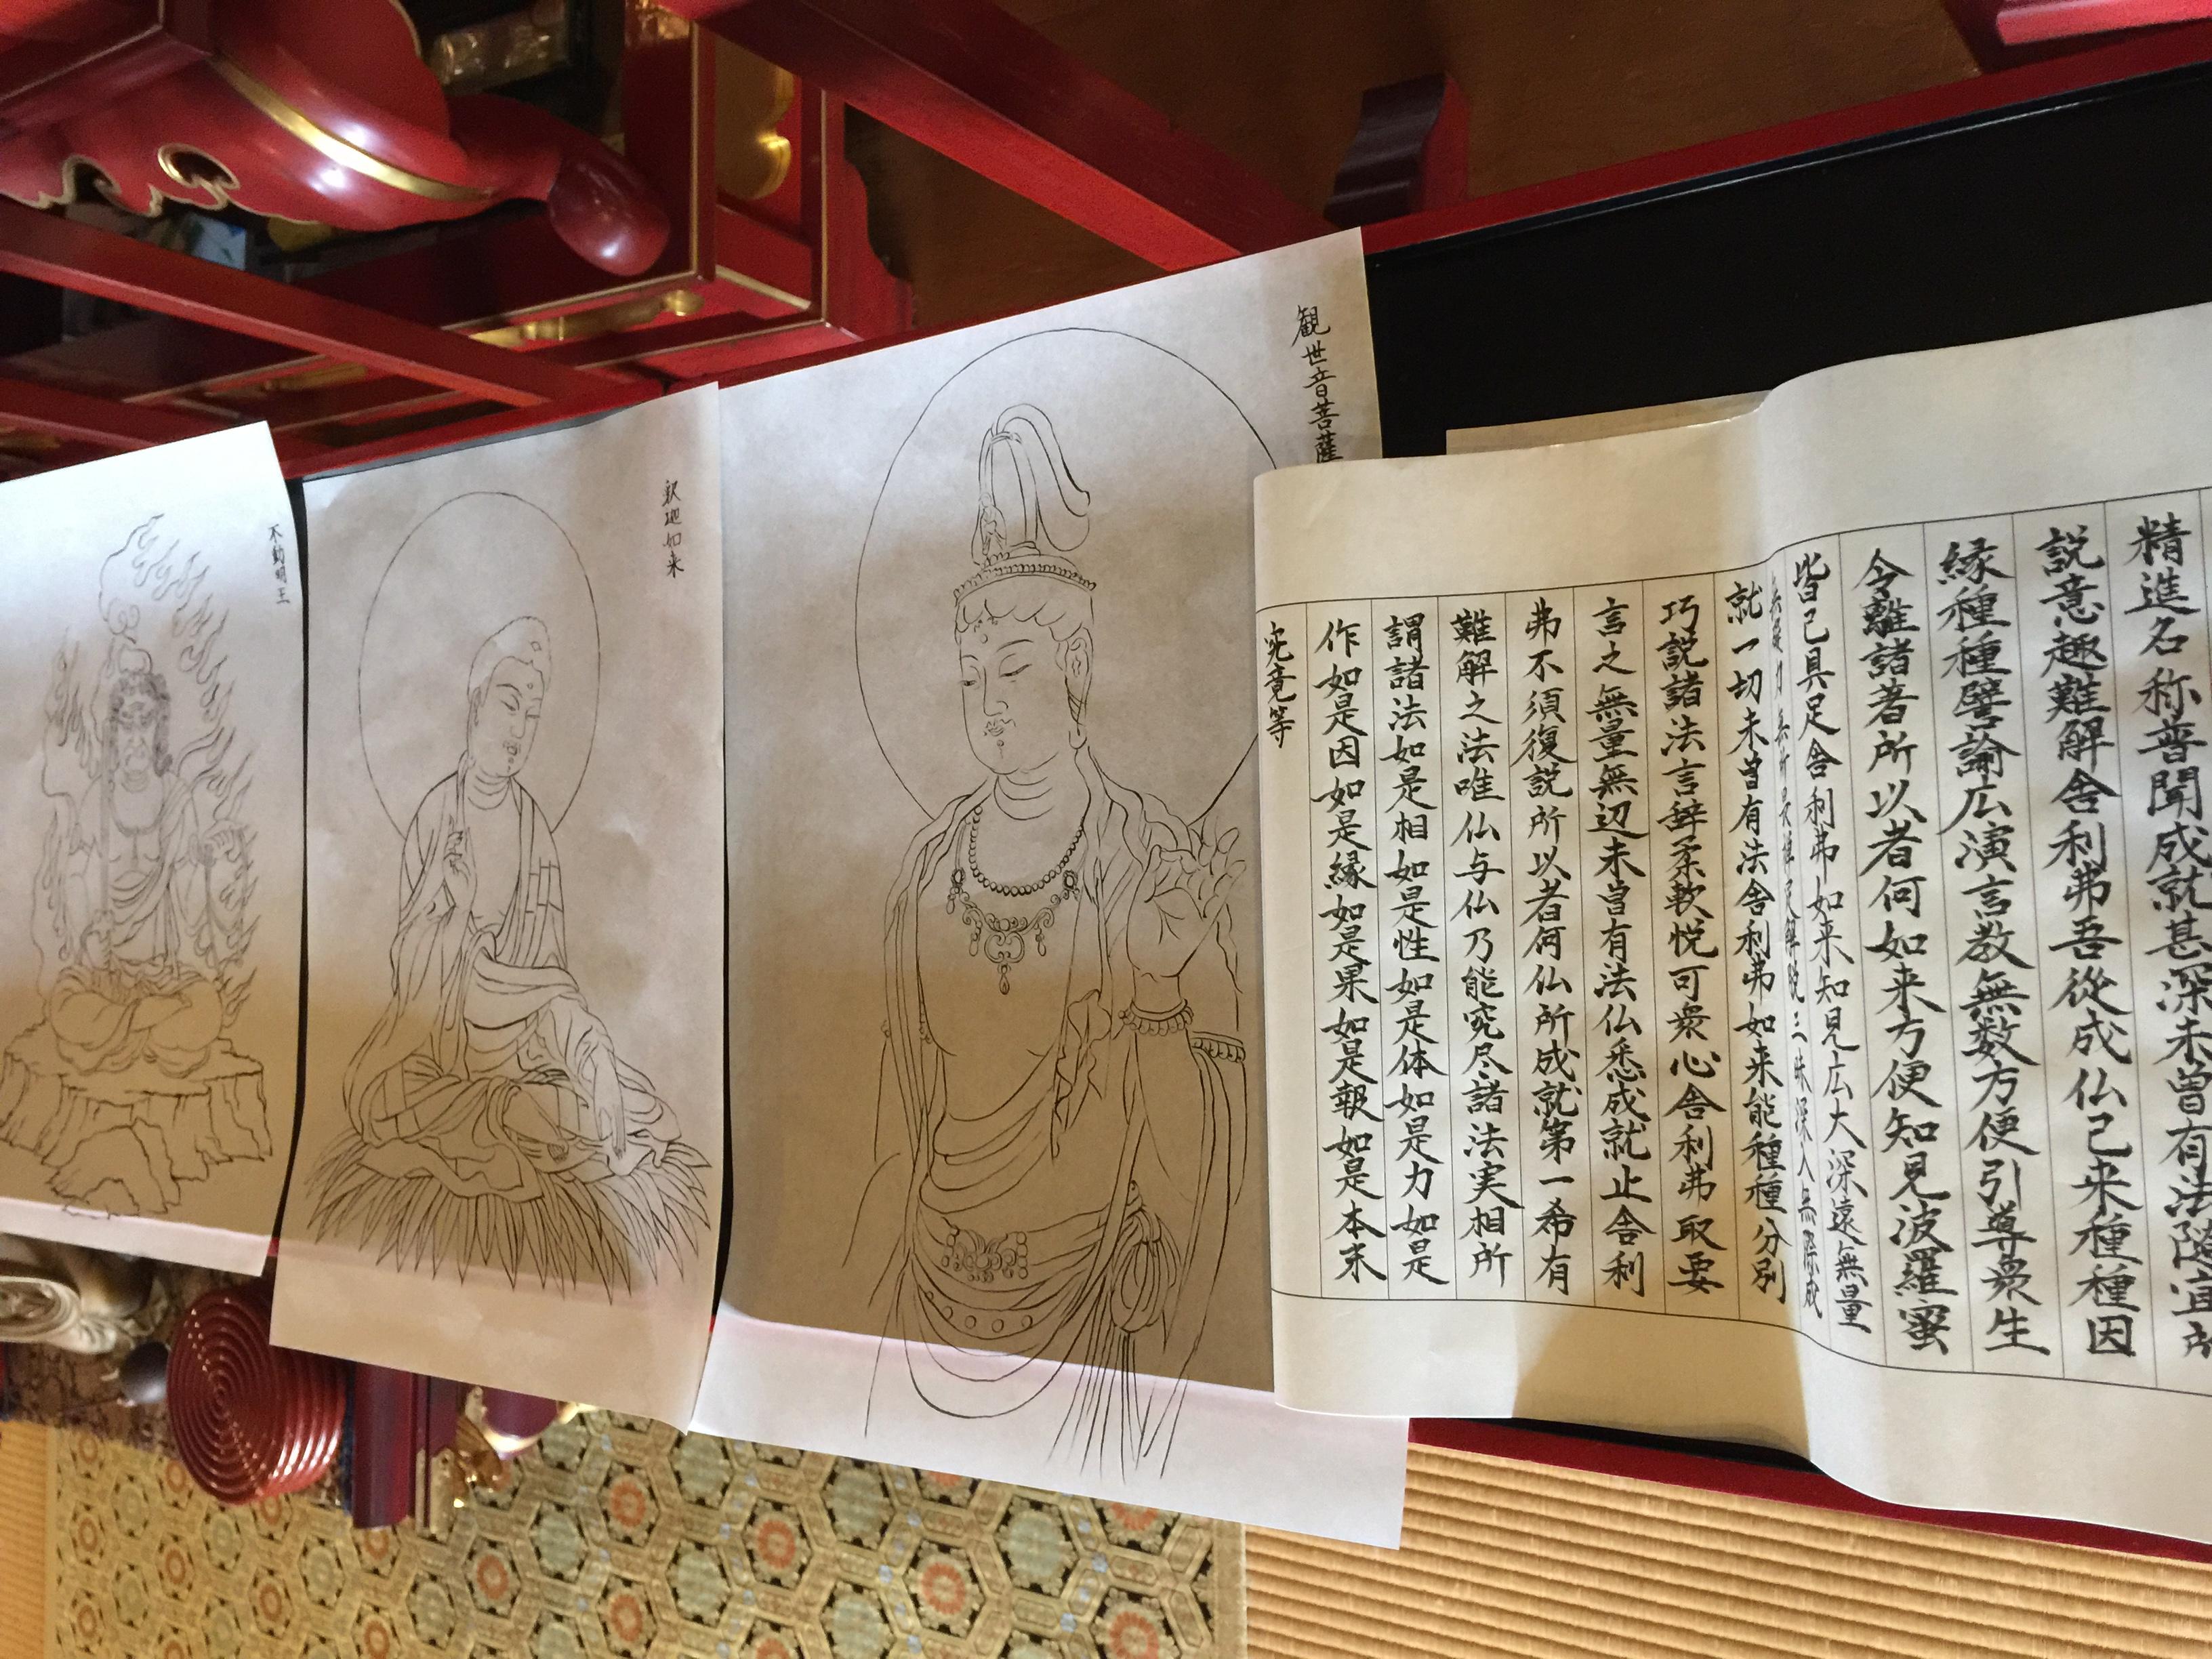 精進名称普聞成就甚深未曾有法随宜所
説意趣難解舎利弗吾從成仏已来種種因
縁種種譬諭広演言教無数方便引導衆生
今離諸著所以者何如来方便知見波羅蜜
皆已具足舎利弗如来知見広大深遠無量
就一切未曾有法舎利弗如来能種種分別
巧説諸法言辞柔軟悦可衆心舎利弗取要
言之無量無辺未曾有法仏悉成就止舎利
弗不須復説所以者何仏所成就第一希有
難解之法唯仏与仏乃能究尽諸法実相所
謂諸法如是相如是性如是体如是力如是
作如是因如是縁如是果如是報如是本末
究竟等
観世音菩薩
釈迦如来
不動明王